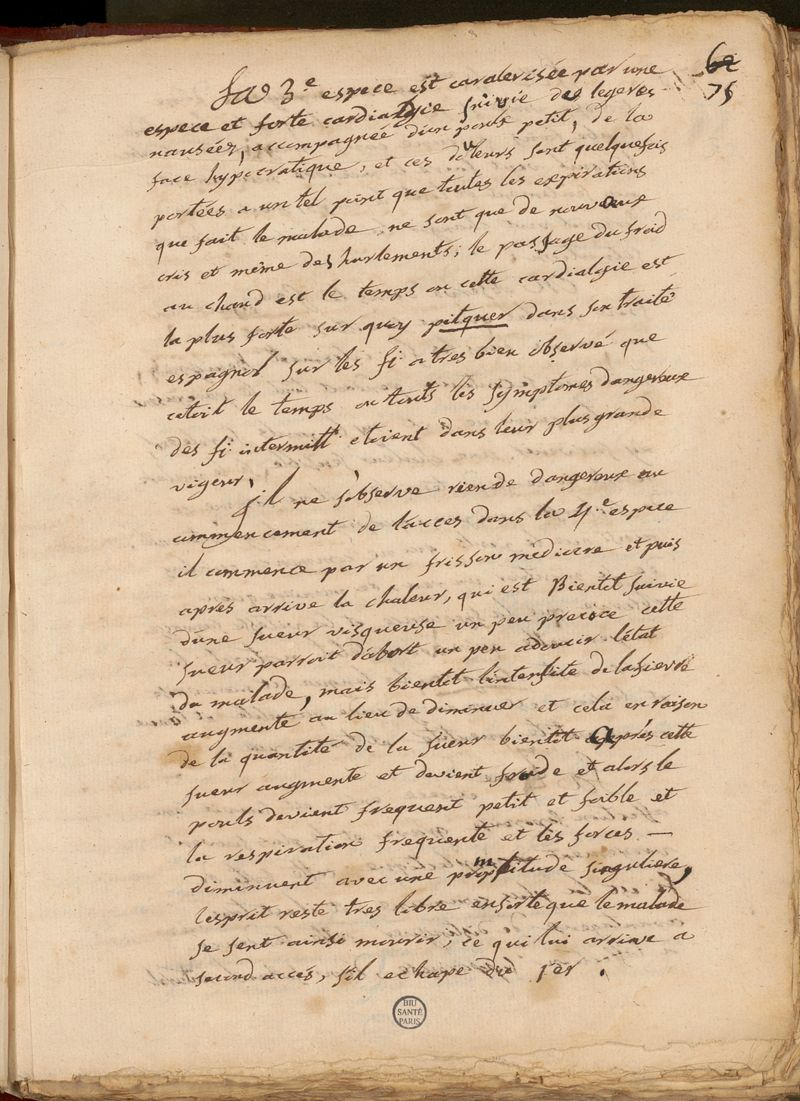 62
75
La 3.e espece est caracterisée par une
espece et forte cardialgie suivie de legeres
nausées, accompagnée d'un pouls petit, de la
face hypocratique, et ces douleurs sont quelquefois
portées a un tel point que toutes les expirations
que fait le malade ne sont que de nouveaux
cris et même des hurlements; le passage du froid
au chaud est le temps ou cette cardialgie est
la plus forte sur quoy pitquer dans son traité
espagnol sur les fi a tres bien observé que
cetoit le temps ou touts les symptomes dangereux
des fi intermitt etoient dans leur plus grande
vigeur,
il ne s'observe rien de dangereux au
commencement de l'acces dans la 4.e espece
il commence par un frisson mediocre et puis
apres arrive la chaleur, qui est Bientit suivie
d'une sueur visqueuse un peu precoce cette
sueur parroit d'abort un peu adoucir l'état
du malade, mais bientit l'intensite de la fievre
augmente au lieu de diminuer et cela en raison
de la quantité de la sueur bientit après cette
sueur augmente et devient froide et alors le
pouls devient frequent petit et foible et
la respiration frequente et les forces —
diminuent avec une promptitude singuliere,
l'esprit reste tres libre ensorte que le malade
se sent ainsi mourir, ce qui lui arrive a
second accés, s'il echape du 1er.
BIU
SANTÉ
PARIS